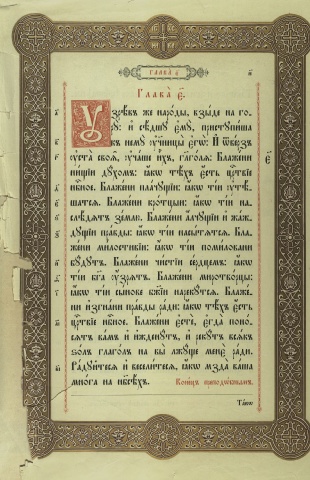 ГЛАВА́ Є҃.
Глава̀ Є҃.
Оу҆зрѣ́въ же наро́ды, взы́де на го-
рꙋ̀: и҆ сѣ́дшꙋ є҆мꙋ̀, пристꙋпи́ша
къ немꙋ̀ ᲂу҆чн҃цы̀ є҆гѡ̀: И҆ ѿве́рзъ
ᲂу҆ста̀ своѧ̑, ᲂу҆ча́ше и҆̀хъ, гл҃ѧ: Бл҃же́ни
ни́щїи дꙋ́хомъ: ꙗ҆́кѡ тѣ́хъ є҆́сть црⷭ҇твїе
нбⷭ҇ное. Бл҃же́ни пла́чꙋщїи: ꙗ҆́кѡ ті́и ᲂу҆тѣ́-
шатсѧ. Бл҃же́ни кро́тцыи: ꙗ҆́кѡ ті́и на-
слѣ́дѧтъ зе́млю. Бл҃же́ни а҆́лчꙋщїи и҆ жа́ж-
дꙋщїи пра́вды: ꙗ҆́кѡ ті́и насы́тѧтсѧ. Бл҃-
же́ни ми́лостивїи: ꙗ҆́кѡ ті́и поми́ловани
бꙋ́дꙋтъ. Бл҃же́ни чи́стїи се́рдцемъ: ꙗ҆́кѡ
ті́и бг҃а ᲂу҆́зрѧтъ. Бл҃же́ни миротво́рцы:
ꙗ҆́кѡ ті́и сы́нове бж҃їи нарекꙋ́тсѧ. Бл҃же́-
ни и҆згна́ни пра́вды ра́ди: ꙗ҆́кѡ тѣ́хъ є҆́сть
црⷭ҇твїе нбⷭ҇ное. Бл҃же́ни є҆стѐ, є҆гда̀ поно́-
сѧтъ ва́мъ и҆ и҆жденꙋ́тъ, и҆ рекꙋ́тъ всѧ́къ
ѕо́лъ глаго́лъ на вы̀ лжꙋ́ще менє̀ ра́ди.
Ра́дꙋйтесѧ и҆ весели́тесѧ, ꙗ҆́кѡ мзда̀ ва́ша
мно́га на нб҃сѣ́хъ. Коне́цъ преподѡ́бнымъ.
Та́кѡ